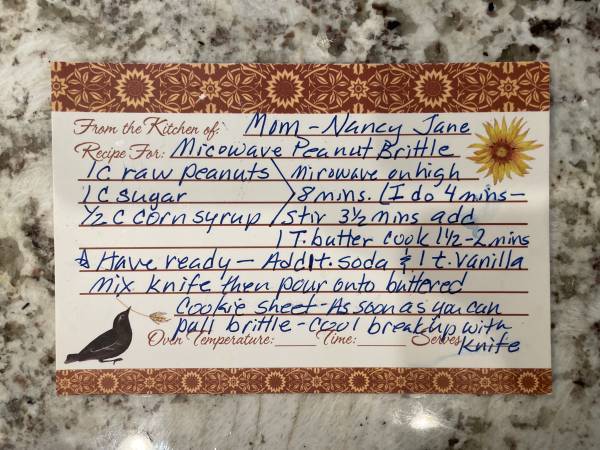 From the Kitchen of: Mom - Nancy Jane
Recipe For: Micowave Peanut Brittle
1 c raw peanuts > Mirowave on high
1 C sugar 8 mins. (I do 4 mins-
1/2 C corn syrup / stir 3½ mins add
1 T. butter cook 1½-2 mins
Have ready - Add 1 t. soda & 1 t. vanilla
Mix knife then pour onto buttered
Cookie sheet - As soon as you can
pull brittle - cool break up with
Oven Temperature: Time: Serves
Knife